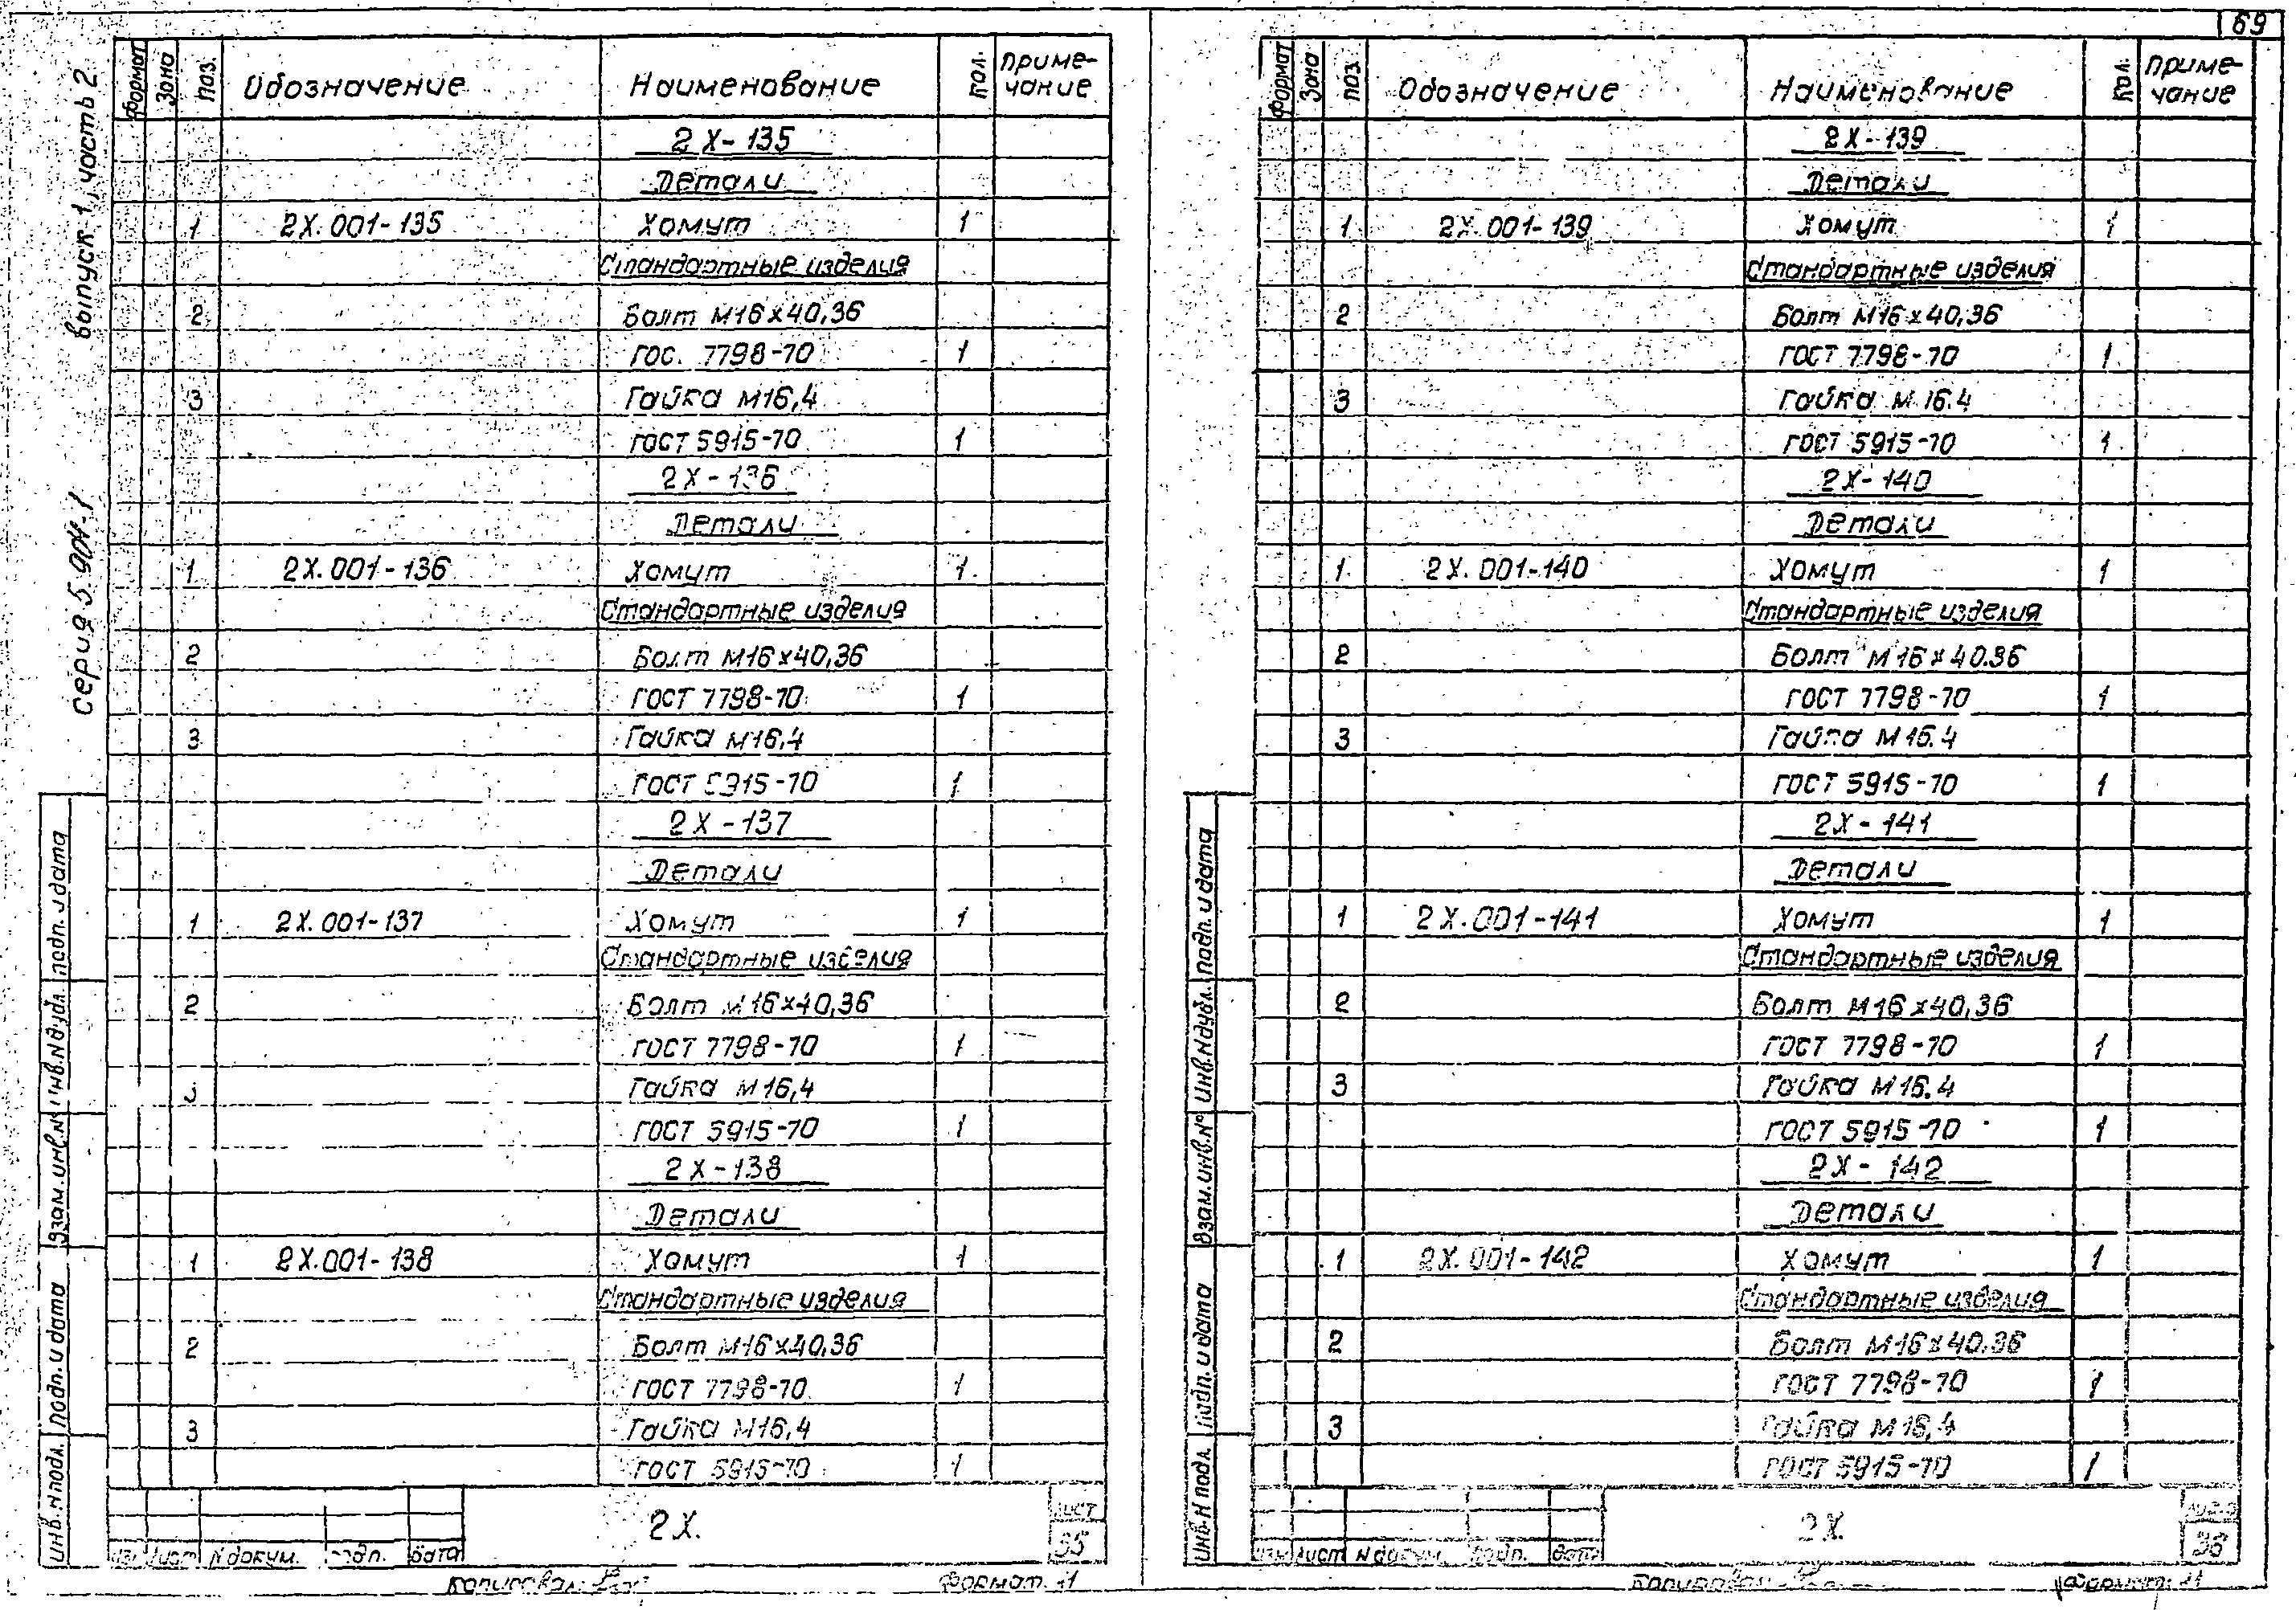 69
серия 5.904-1 выпуск 1, часть 2
Формат Зона Поз. Обозначение Наименование Кол. Приме-
чание
2Х-135
Детали
1 2Х.001-135 Хомут 1
Стандартные изделия
2 Болт М16х40,36
ГОС. 7798-70 1
3 Гайка М16,4
ГОСТ 5915-70 1
2Х-136
Детали
1 2Х.001-136 Хомут 1
Стандартные изделия
2 Болт М16х40,36
ГОСТ 7798-70 1
3 Гайка М16,4
ГОСТ 5915-70 1
2Х-137
Детали
1 2Х.001-137 Хомут 1
Стандартные изделия
2 Болт М16х40,36
ГОСТ 7798-70 1
3 Гайка М16,4
ГОСТ 5915-70 1
2Х-138
Детали
1 2Х.001-138 Хомут 1
Стандартные изделия
2 Болт М16х40,36
ГОСТ 7798-70 1
3 Гайка М16,4
ГОСТ 5915-70 1
Инв.№подл. Подп. и дата Взам.инв.№ Инв.№дубл. Подп. и дата
2Х.
Лист
35
Изм Лист №докум. Подп. Дата
Копировал Формат 11
Формат Зона Поз. Обозначение Наименование Кол. Приме-
чание
2Х-139
Детали
1 2Х.001-139 Хомут 1
Стандартные изделия
2 Болт М16х40,36
ГОСТ 7798-70 1
3 Гайка М16.4
ГОСТ 5915-70 1
2Х-140
Детали
1 2Х.001-140 Хомут 1
Стандартные изделия
2 Болт М16х40.36
ГОСТ 7798-70 1
3 Гайка М16.4
ГОСТ 5915-70 1
2Х-141
Детали
1 2Х.001-141 Хомут 1
Стандартные изделия
2 Болт М16х40,36
ГОСТ 7798-70 1
3 Гайка М16.4
ГОСТ 5915-70 1
2Х-142
Детали
1 2Х.001-142 Хомут 1
Стандартные изделия
2 Болт М16х40.36
ГОСТ 7798-70 1
3 Гайка М16,4
ГОСТ 5915-70 1
Инв.№ подл. Подп. и дата Взам.инв.№ Инв.№дубл. Подп. и дата
2Х.
Лист
36
Изм Лист №докум. Подп. Дата
Копировал Формат 11